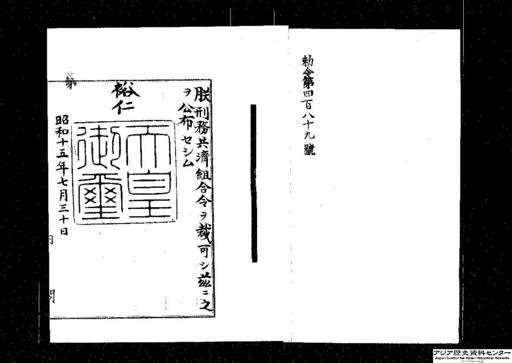 勅令第四百八十九號
朕刑務共濟組合令ヲ裁可シ茲ニ之
ヲ公布セシム
裕仁
天皇
御璽
昭和十五年七月三十日
アジア歴史資料センター
Japan Center for Asian Historical Records